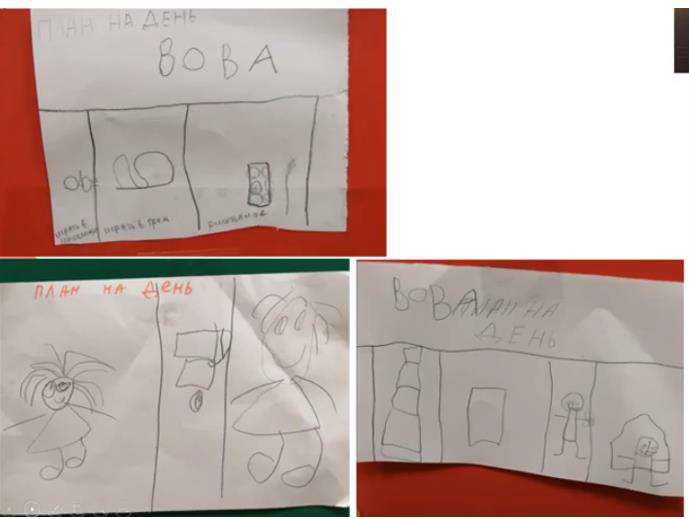 ПЛАН НА ДЕНЬ
ВОВА
играть в
играть в
ПЛАН НА ДЕНЬ
ВОВА ПЛАН НА
ДЕНЬ